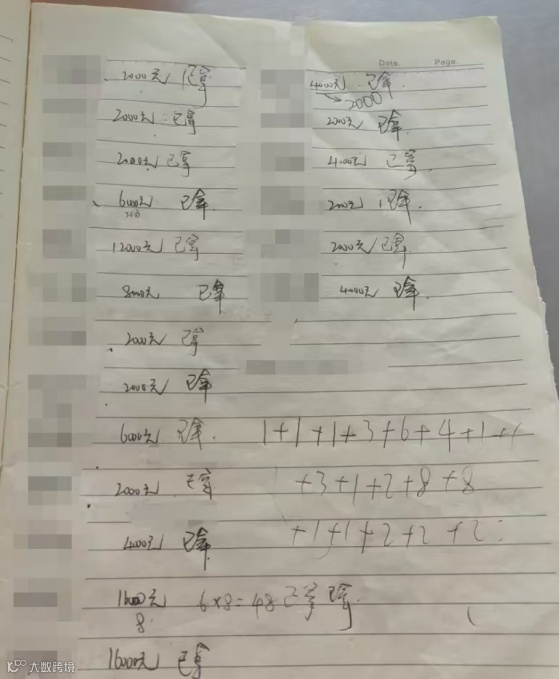 Date. Page.
2000元 已拿
2000元 已拿
2000元 已拿
6000元 已拿
12000元 已拿
8000元 已拿
2000元 已拿
2000元 已拿
6000元 已拿
2000元 已拿
4000元 已拿
16000元 6×8=48 已拿 已拿
8
16000元 已拿
4000元 已拿
→2000
2000元 已拿
4000元 已拿
2000元 已拿
2000元 已拿
4000元 已拿
1+1+1+3+6+4+1+1
+3+1+2+8+8
+1+1+2+2+2
大数跨境